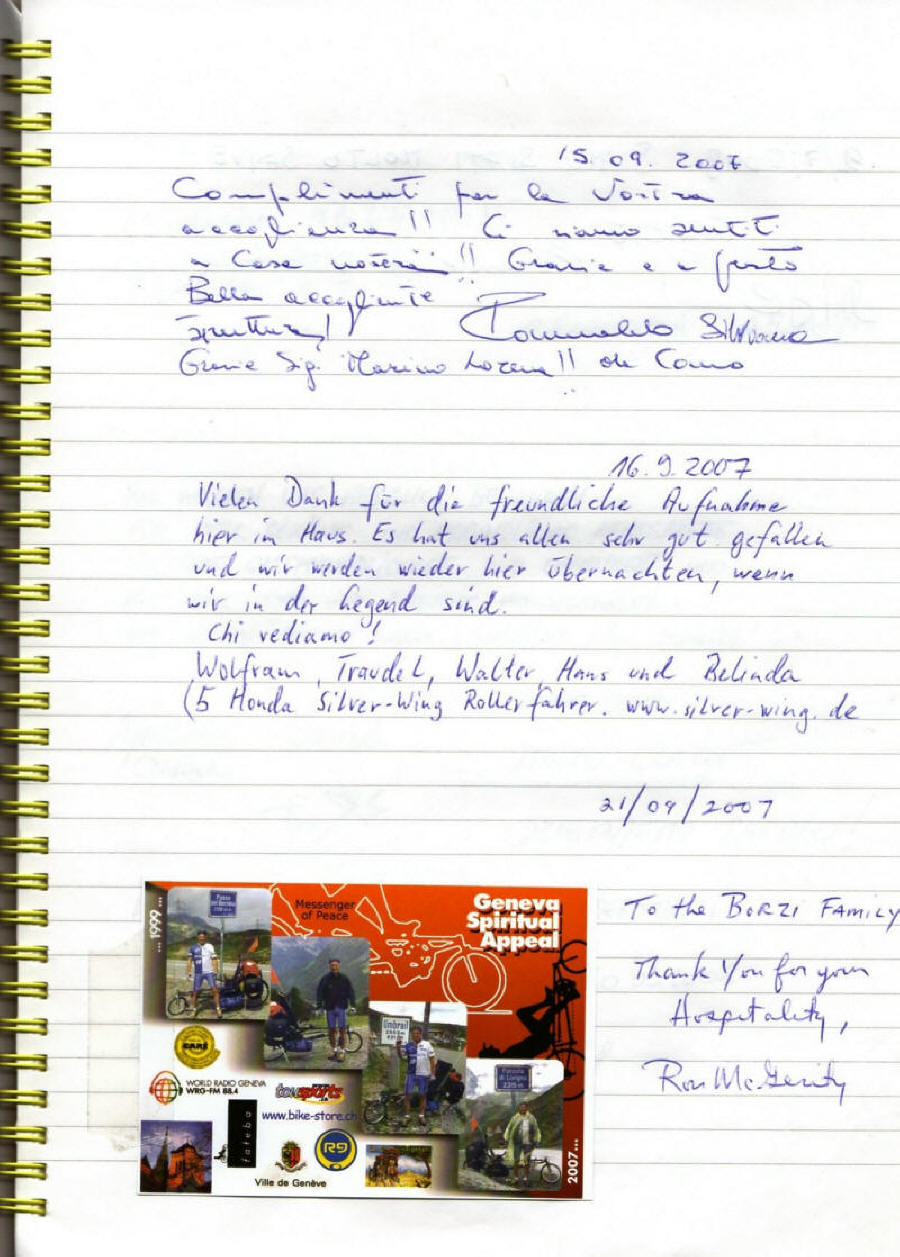 15.09.2007
Complimenti per la Vostra
accoglienza!! Ci siamo sentiti
a Casa nostra!! Grazie e a presto
Bella accogliente
struttura! Romualdo Silvana
Grazie Sig. Marino Lorena!! da Como
16.9.2007
Vielen Dank für die freundliche Aufnahme
hier im Haus. Es hat uns allen sehr gut gefallen
und wir werden wieder hier übernachten, wenn
wir in der Gegend sind.
Chi vediamo!
Wolfram, Traudel, Walter, Hans und Belinda
(5 Honda Silver-Wing Rollerfahrer. www.silver-wing.de
21/09/2007
To the Borzi Family
Thank You for your
Hospitality,
Ron McGerity
1999...
Messenger
of Peace
Geneva
Spiritual
Appeal
Umbrail
CARE
WORLD RADIO GENEVA
WRG-FM 88.4
toysports
www.bike-store.ch
fateba
Ville de Genève
Forcola
di Livigno
2315 m
2007...